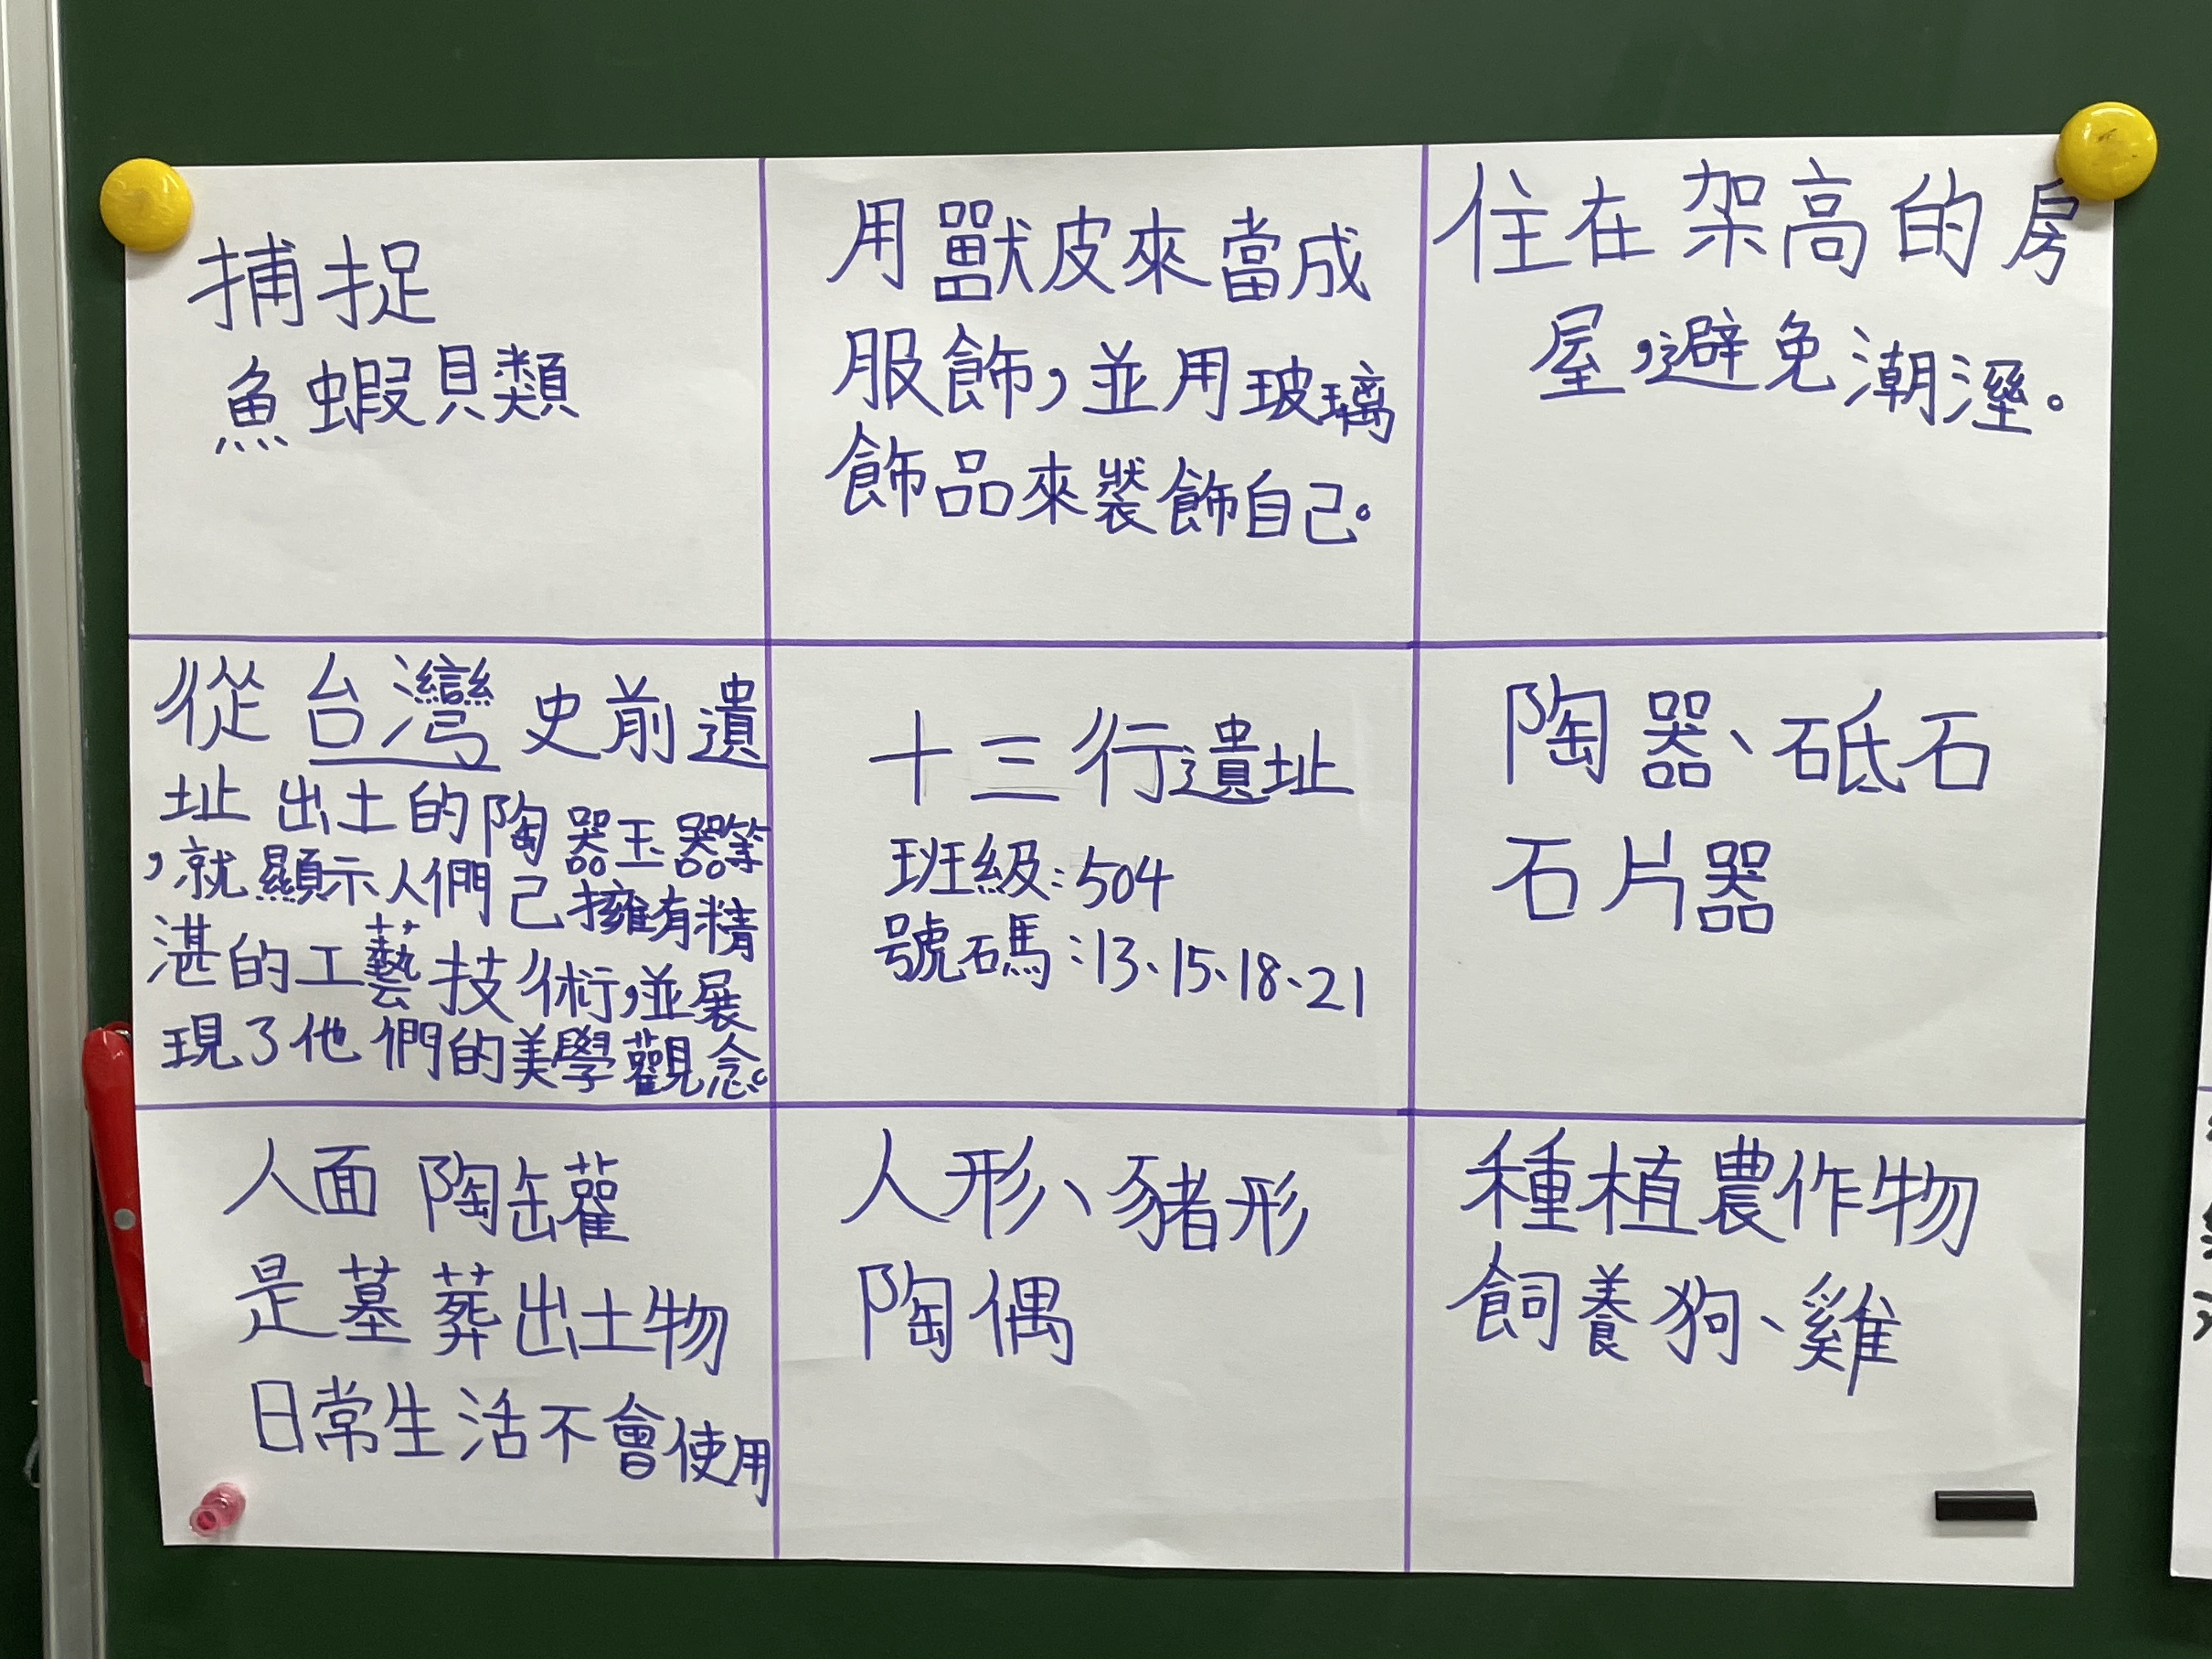 捕捉
魚蝦貝類
用獸皮來當成
服飾，並用玻璃
飾品來裝飾自己。
住在架高的房
屋，避免潮溼。
從台灣史前遺
址出土的陶器玉器等
，就顯示人們己擁有精
湛的工藝技術，並展
現了他們的美學觀念。
十三行遺址
班級：504
號碼：13、15、18、21
陶器、砥石
石片器
人面陶罐
是墓葬出土物
日常生活不會使用
人形、豬形
陶偶
種植農作物
飼養狗、雞